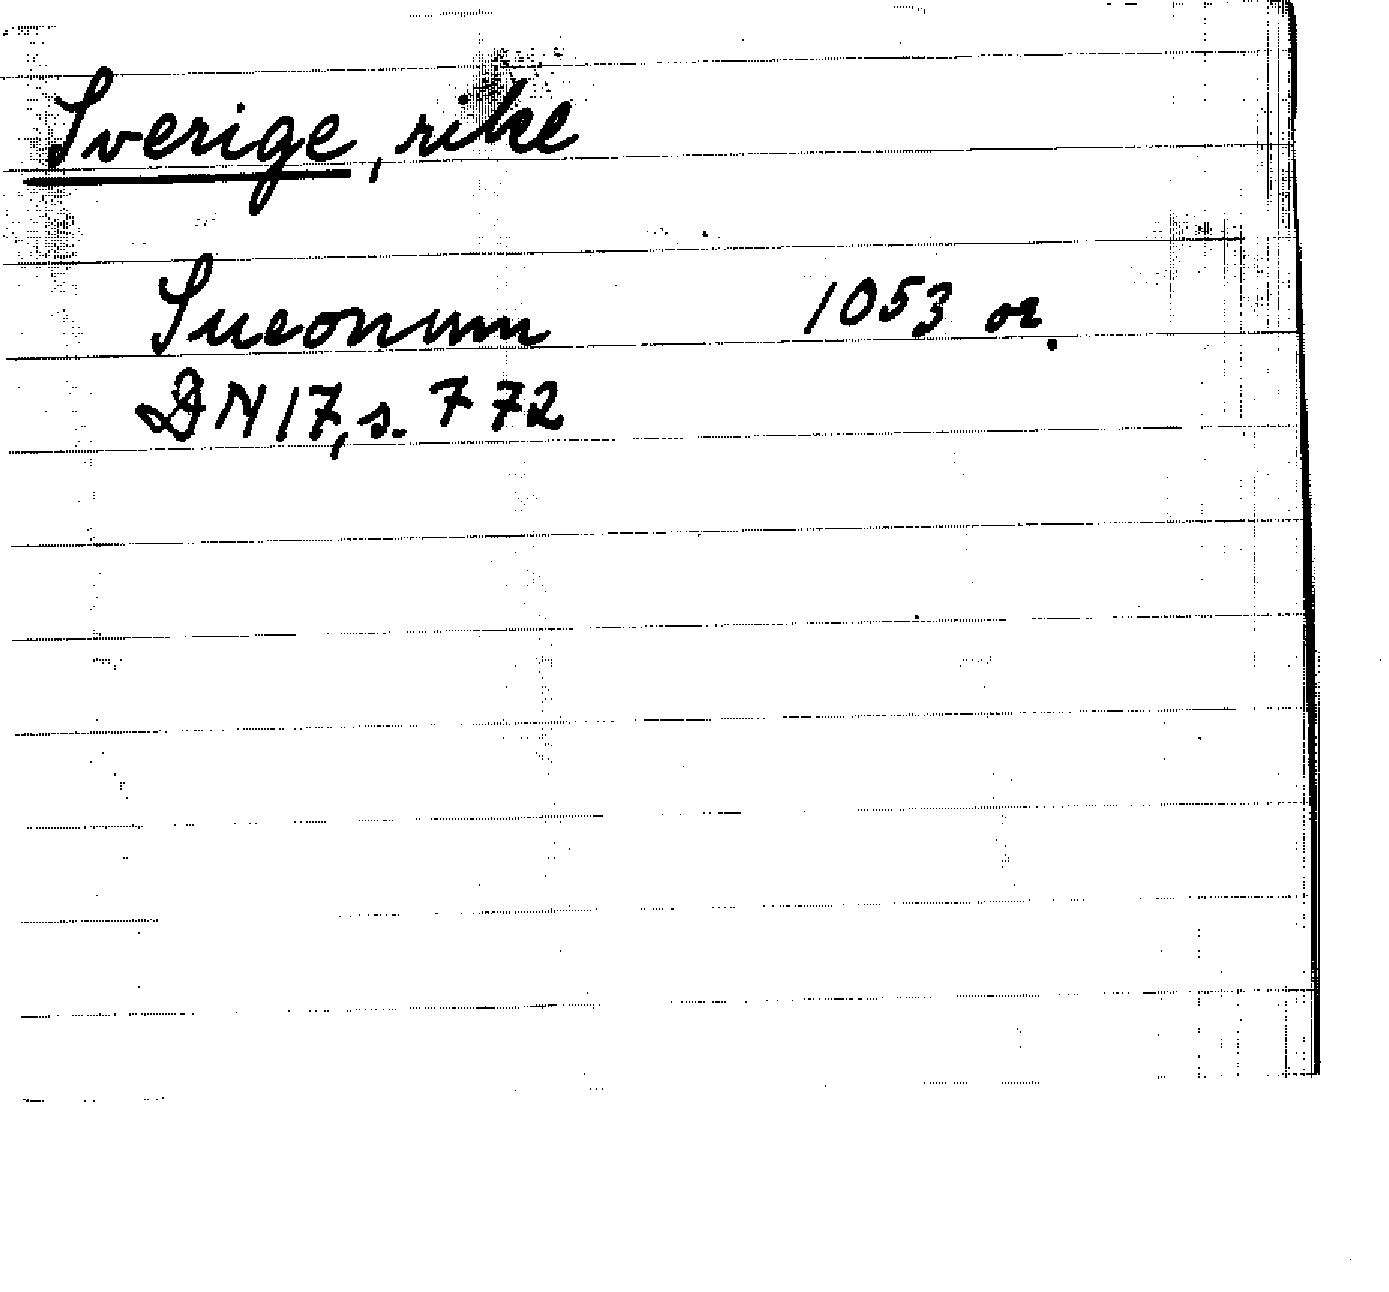 Sverige, rike
Sueonum 1053 or.
DN 17, s. 772